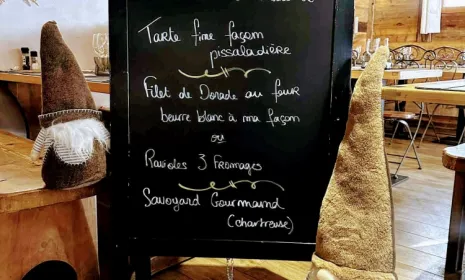 Tarte fine façon
pissaladière
Filet de Dorade au four
beurre blanc à ma façon
ou
Ravioles 3 Fromages
Savoyard Gourmand
(chartreuse)